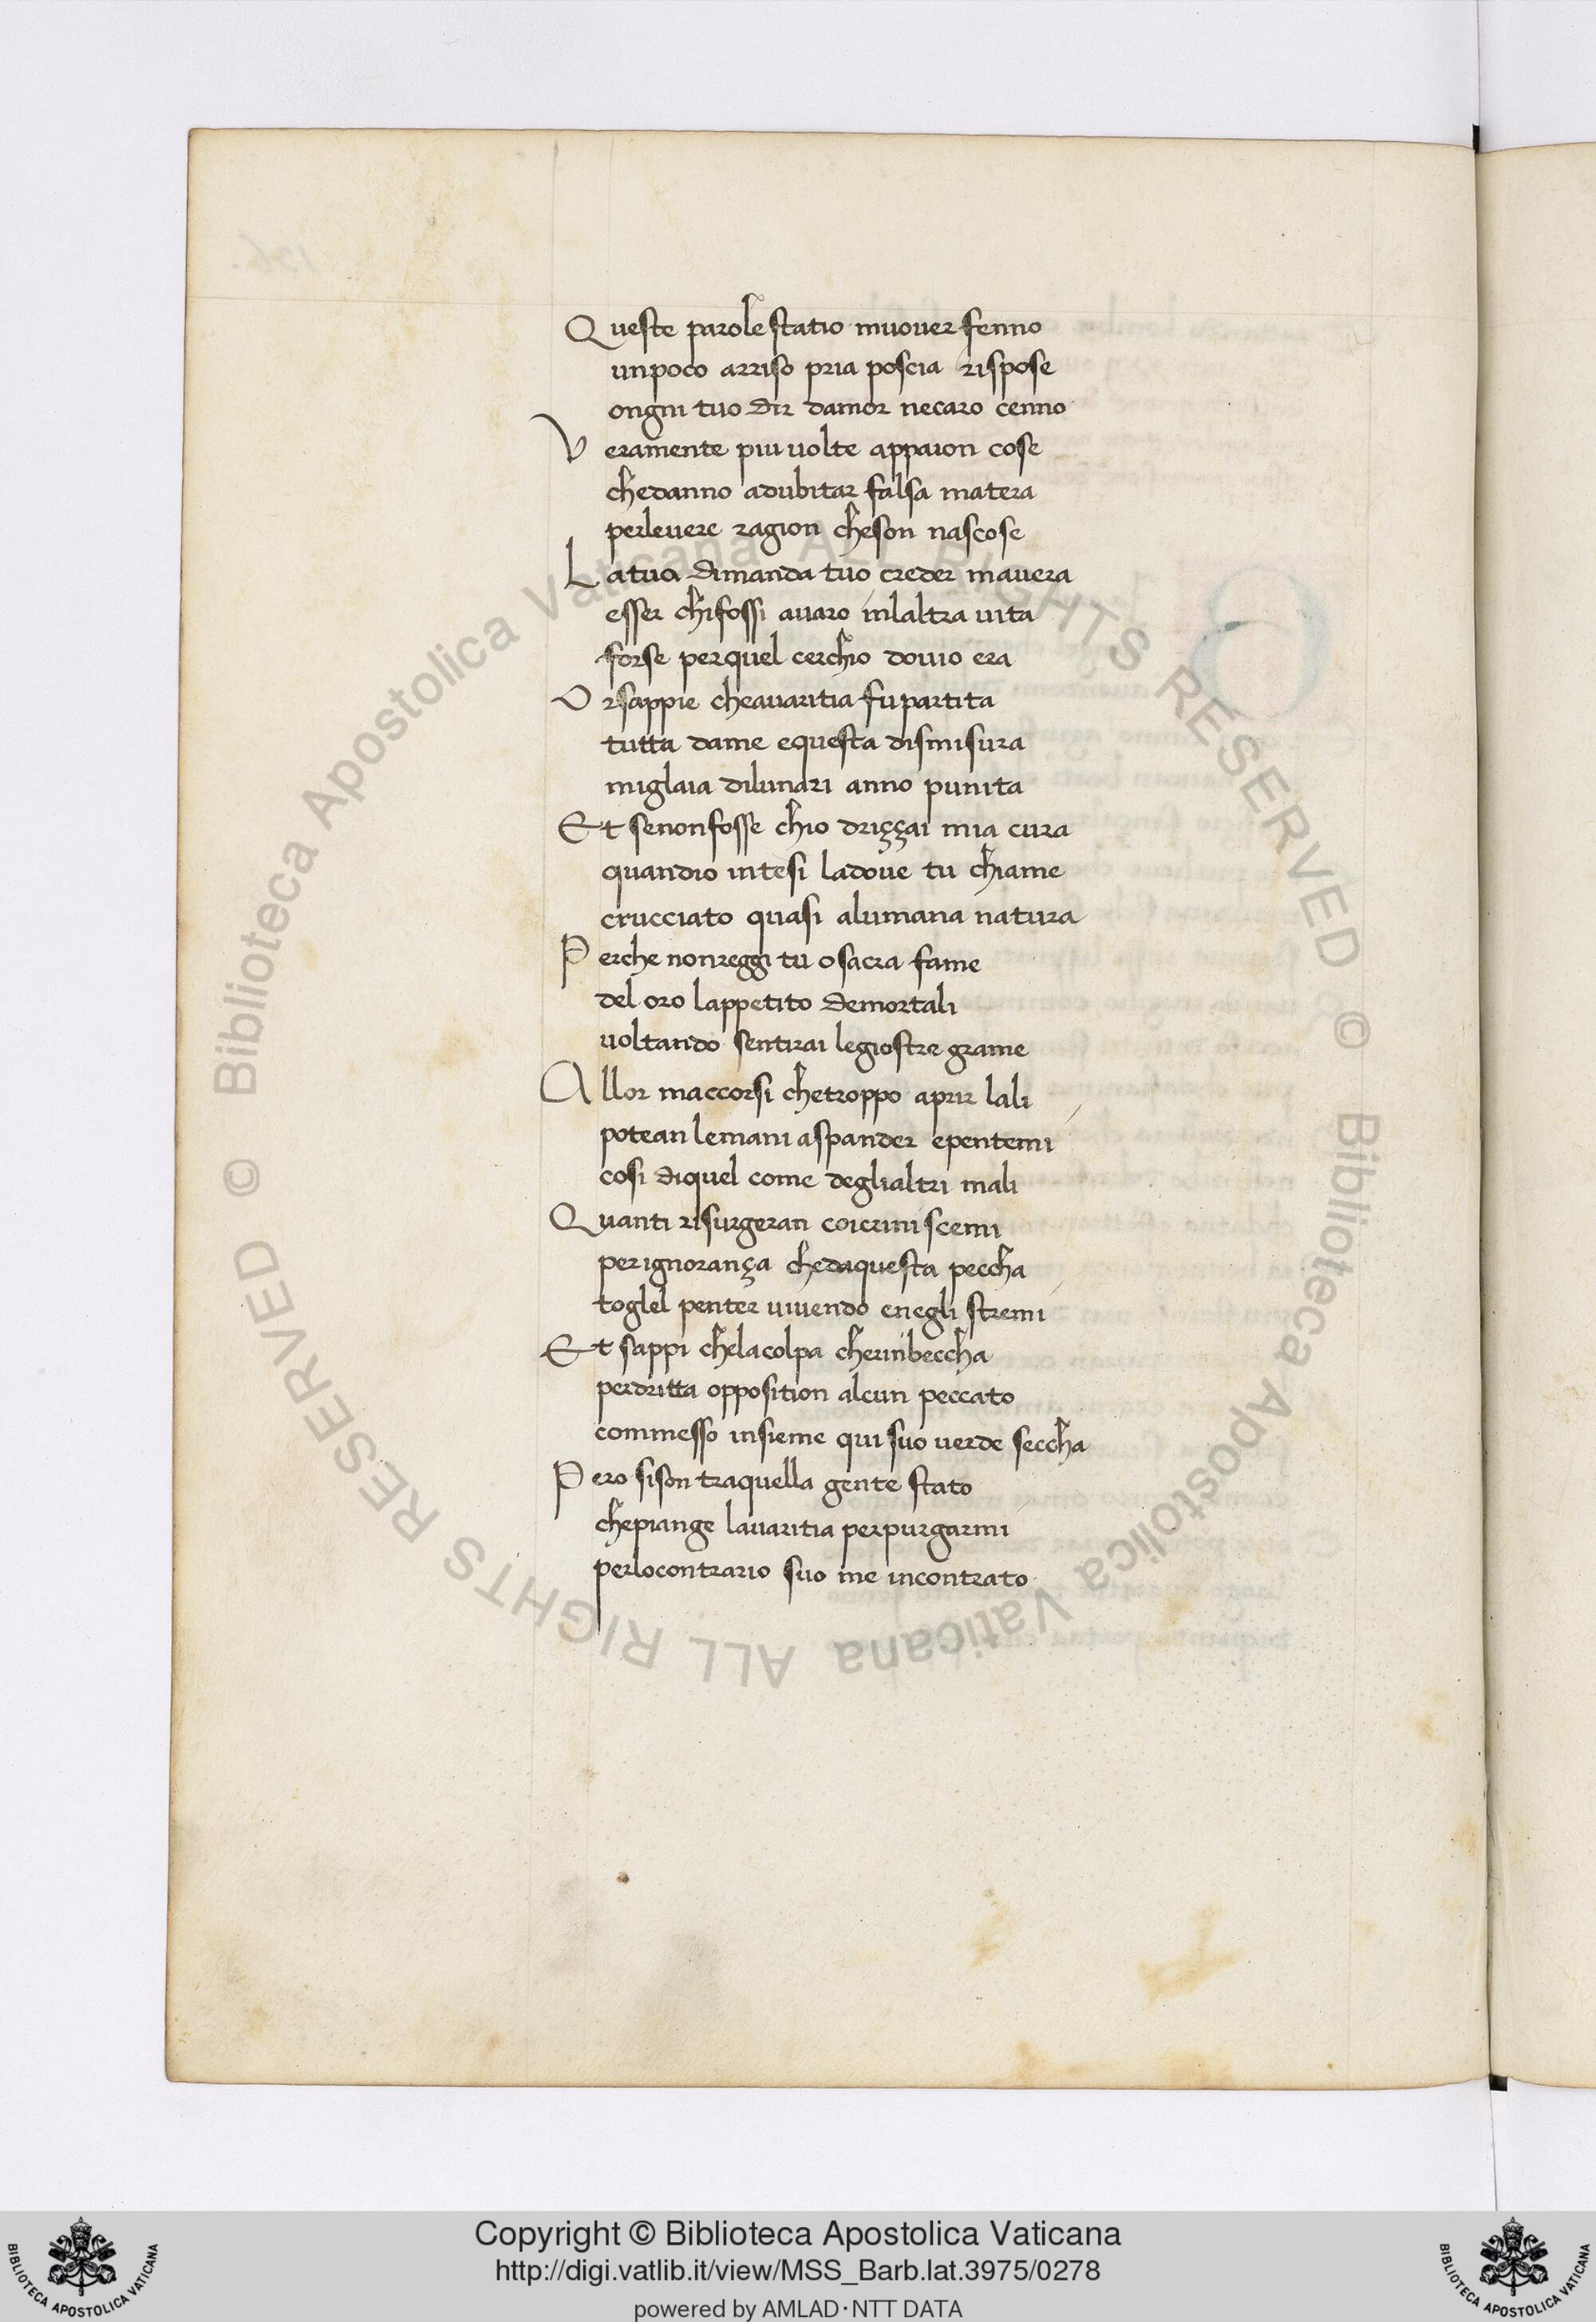 Queste parole statio muover fenno
unpoco arriso pria poscia rispose
ongni tuo dir damor necaro cenno
Veramente piu uolte appaion cose
chedanno adubitar falsa matera
perleuere ragion cheson nascose
Latua dimanda tuo creder mauera
esser chifossi auaro inlaltra uita
forse perquel cerchio douio era
Orsappie cheauaritia fupartita
tutta dame equesta dismisura
miglaia dilunari anno punita
Et senonfosse chio driççai mia cura
quandio intesi ladoue tu chiame
crucciato quasi alumana natura
Perche nonreggi tu o sacra fame
del oro lappetito demortali
uoltando sentirai legiostre grame
Allor maccorsi chetroppo aprir lali
potean lemani aspander epentemi
cosi diquel come deglialtri mali
Quanti risurgeran coicrini scemi
perignorança chedaquesta peccha
toglel penter uiuendo enegli stremi
Et sappi chelacolpa cherinbeccha
perdritta opposition alcun peccato
commesso insieme qui suo uerde seccha
Pero sison traquella gente stato
chepiange lauaritia perpurgarmi
perlocontrario suo me incontrato
136.
© Biblioteca Apostolica Vaticana ALL RIGHTS RESERVED
© Biblioteca Apostolica Vaticana ALL RIGHTS RESERVED
Copyright © Biblioteca Apostolica Vaticana
http://digi.vatlib.it/view/MSS_Barb.lat.3975/0278
powered by AMLAD·NTT DATA
BIBLIOTECA APOSTOLICA VATICANA
BIBLIOTECA APOSTOLICA VATICANA